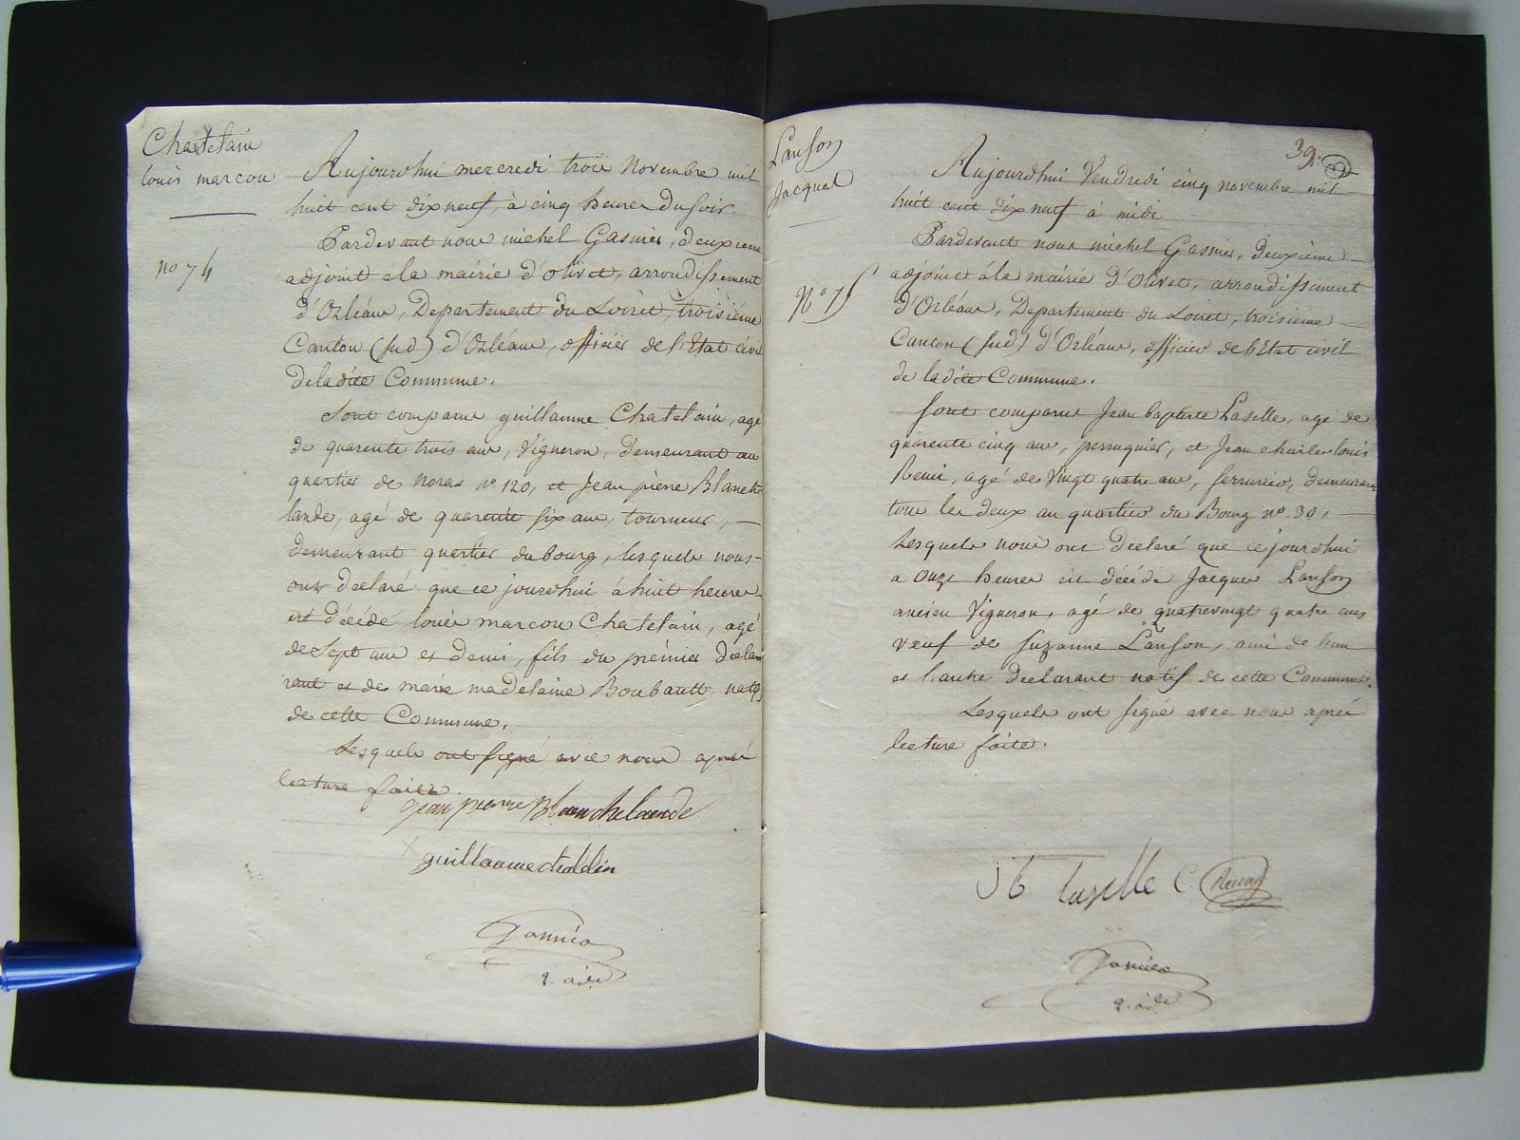 Chatelain
louis marcou
no 74
Aujourdhui mercredi trois Novembre mil
huit cent dix neuf, à cinq heures Du soir.
Pardevant nous michel Gasnier, deuxieme
adjoint à la mairie d'olivet, arrondissement
d'Orléans, Departement du Loiret, troisième
Canton (sud) d'Orléans, officier de l'Etat civil
de la dite Commune.
Sont comparus guillaume Chatelain, agé
de quarente trois ans, Vigneron, demeurant au
quartier de Noras no 120, et Jean pierre Blanche
lande, agé de quarente six ans, tourneur,
demeurant quartier du bourg, lesquels nous
ont declaré que ce jourdhui à huit heures
est décédé louis marcou Chatelain, agé
de sept ans et demi, fils du prémier Declar
rant et de marie madelaine Boubault natif
de cette Commune.
Lesquels ont signé avec nous aprés
lecture faite.
Jean pierre Blanchelande
guillaume
Gasnier
2. adj.
39.
Lanson
Jacques
No 75
Aujourdhui Vendredi cinq novembre mil
huit cent dix neuf à midi
Pardevant nous michel Gasnier, Deuxième
adjoint à la mairie d'Olivet, arrondissement
d'Orléans, Departement du Loiret, troisieme
Canton (sud) d'Orléans, officier de l'Etat civil
de la dite Commune.
Sont comparus Jean baptiste Laselle, agé de
quarente cinq ans, perruquier, et Jean charles louis
agé de Vingt quatre ans, serrurier, demeurans
tous les deux au quartier du Bourg no 30,
Lesquels nous ont Declaré que ce jourdhui
a onze heures est décédé Jacques Lanson
ancien Vigneron, agé de quatrevingt quatre ans
veuf de Suzanne Lanson, ami de l'un
et l'autre Declarant natif de cette Commune.
Lesquels ont signé avec nous aprés
lecture faite.
JB Laselle C.
Gasnier
2. adj.